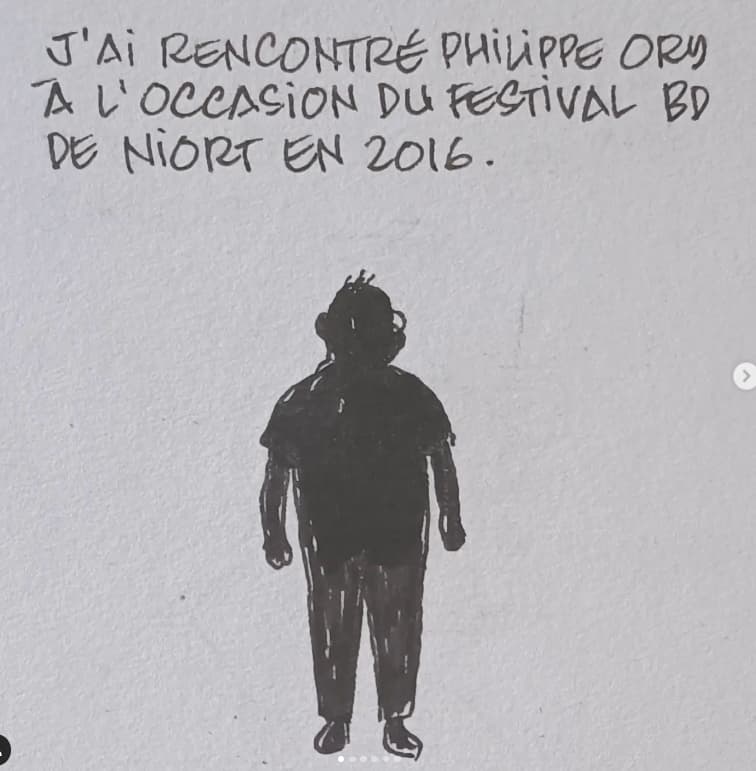 J'Ai RENCONTRÉ PHiLiPPE ORY
À L'OCCASiON DU FESTiVAL BD
DE NiORT EN 2016.